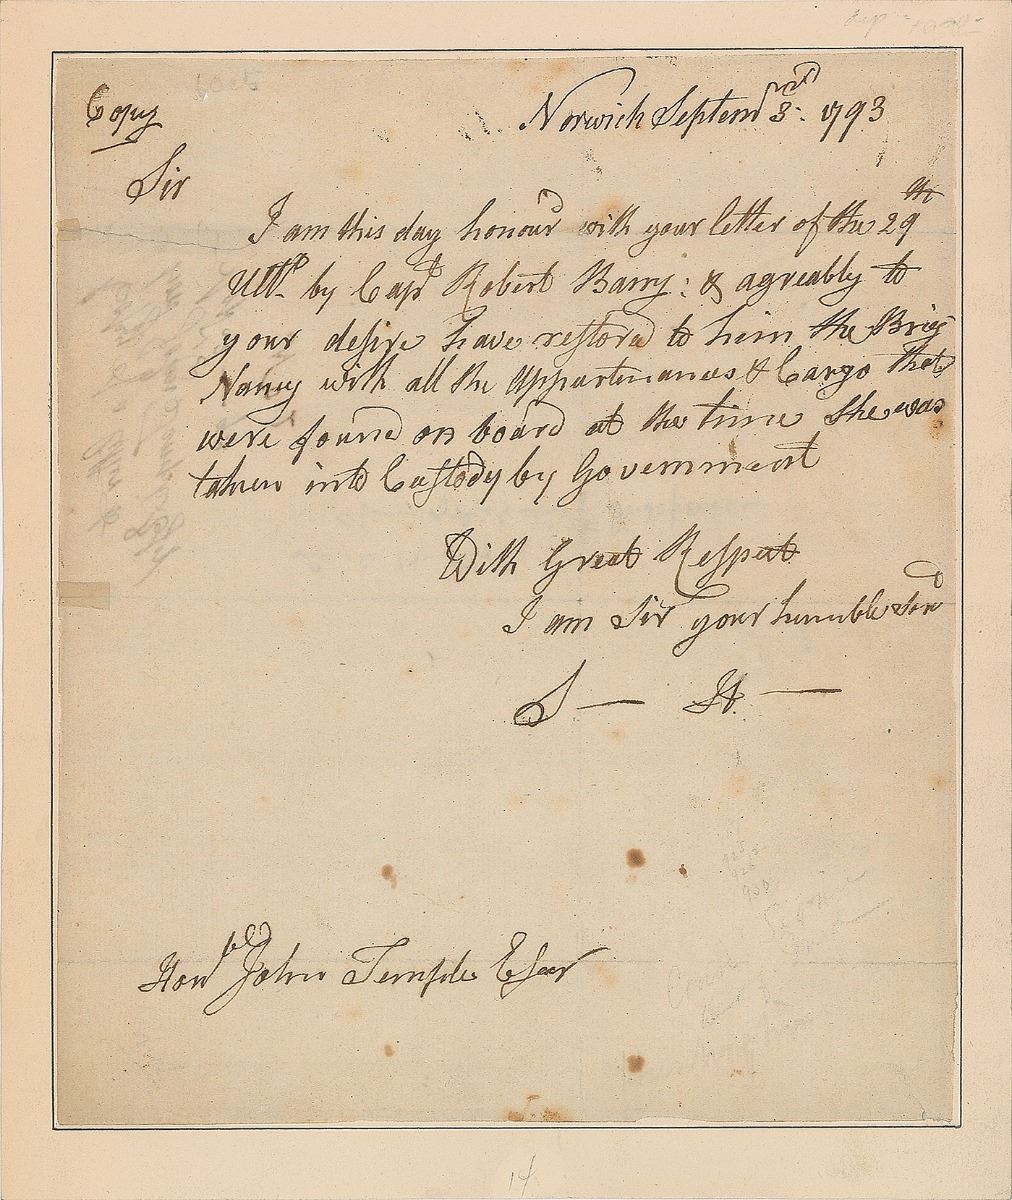 Copy
Norwich Septem 3rd 1793
Sir
I am this day honourd with your letter of the 29th
Ulto by Capt Robert Barry: & agreably to
your desire have restored to him the Brig
Nancy with all the Appurtenances & Cargo that
were found on board at the time She was
taken into Custody by Government
With Great Respect
I am Sir your humble Servt
S — H —
Honble John Temple Esqr
14